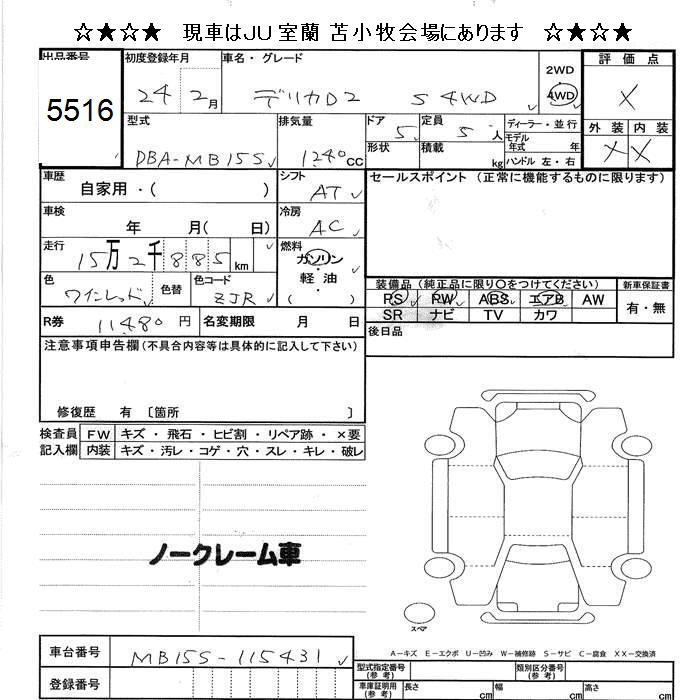 ☆★☆★ 現車はJU室蘭 苫小牧会場にあります ☆★☆★
出品番号 初度登録年月 車名・グレード 2WD 評価点
5516 24年2月 デリカD2 S 4WD 4WD X
型式 排気量 ドア 定員 ディーラー・並行 外装 内装
DBA-MB15S 1240CC 5 5人 モデル年式 年 X X
形状 積載 kg ハンドル 左・右
車歴 シフト セールスポイント (正常に機能するものに限ります)
自家用・( ) AT
車検 冷房
年 月( 日) AC
走行 燃料
15万2千885km ガソリン
軽・油
( )
色 色替 色コード 装備品 (純正品に限り○をつけてください) 新車保証書
ワインレッド ZJR PS PW ABS エアB AW 有・無
SR ナビ TV カワ
R券 11480円 名変期限 月 日 後日品
注意事項申告欄(不具合内容等は具体的に記入して下さい)
修復歴 有 〔箇所 〕
検査員 FW キズ・飛石・ヒビ割・リペア跡・×要
記入欄 内装 キズ・汚レ・コゲ・穴・スレ・キレ・破レ
ノークレーム車
スペア
A−キズ E−エクボ U−凹み W−補修跡 S−サビ C−腐食 XX−交換済
車台番号 MB15S-115431
型式指定番号(参考) 類別区分番号(参考)
登録番号
車庫証明用(参考) 長さ cm 幅 cm 高さ cm